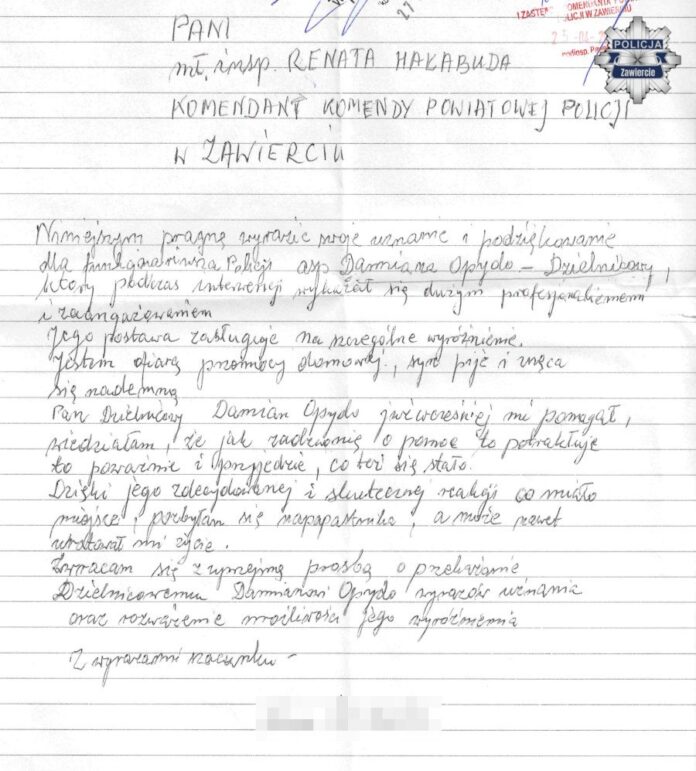 I ZASTĘP
POLICJI W ZAWIERCIU
27
POLICJA
Zawiercie
PANI
mł. insp. RENATA HAKABUDA
KOMENDANT KOMENDY POWIATOWEJ POLICJI
W ZAWIERCIU
Niniejszym pragnę wyrazić swoje uznanie i podziękowanie
dla funkcjonariusza Policji asp Damiana Opydo – Dzielnicowy,
który podczas interwencji wykazał się dużym profesjonalizmem
i zaangażowaniem
Jego postawa zasługuje na szczególne wyróżnienie.
Jestem ofiarą przemocy domowej, syn pije i znęca
się nademną
Pan Dzielnicowy Damian Opydo już wcześniej mi pomagał,
wiedziałam, że jak zadzwonię o pomoc to potraktuje
to poważnie i przyjedzie, co też się stało.
Dzięki jego zdecydowanej i skutecznej reakcji co miało
miejsce, pozbyłam się napapastnika, a może nawet
uratował mi życie.
Zwracam się z uprzejmą prośbą o przekazanie
Dzielnicowemu Damianowi Opydo wyrazów uznania
oraz rozważenie możliwości jego wyróżnienia
Z wyrazami szacunku –